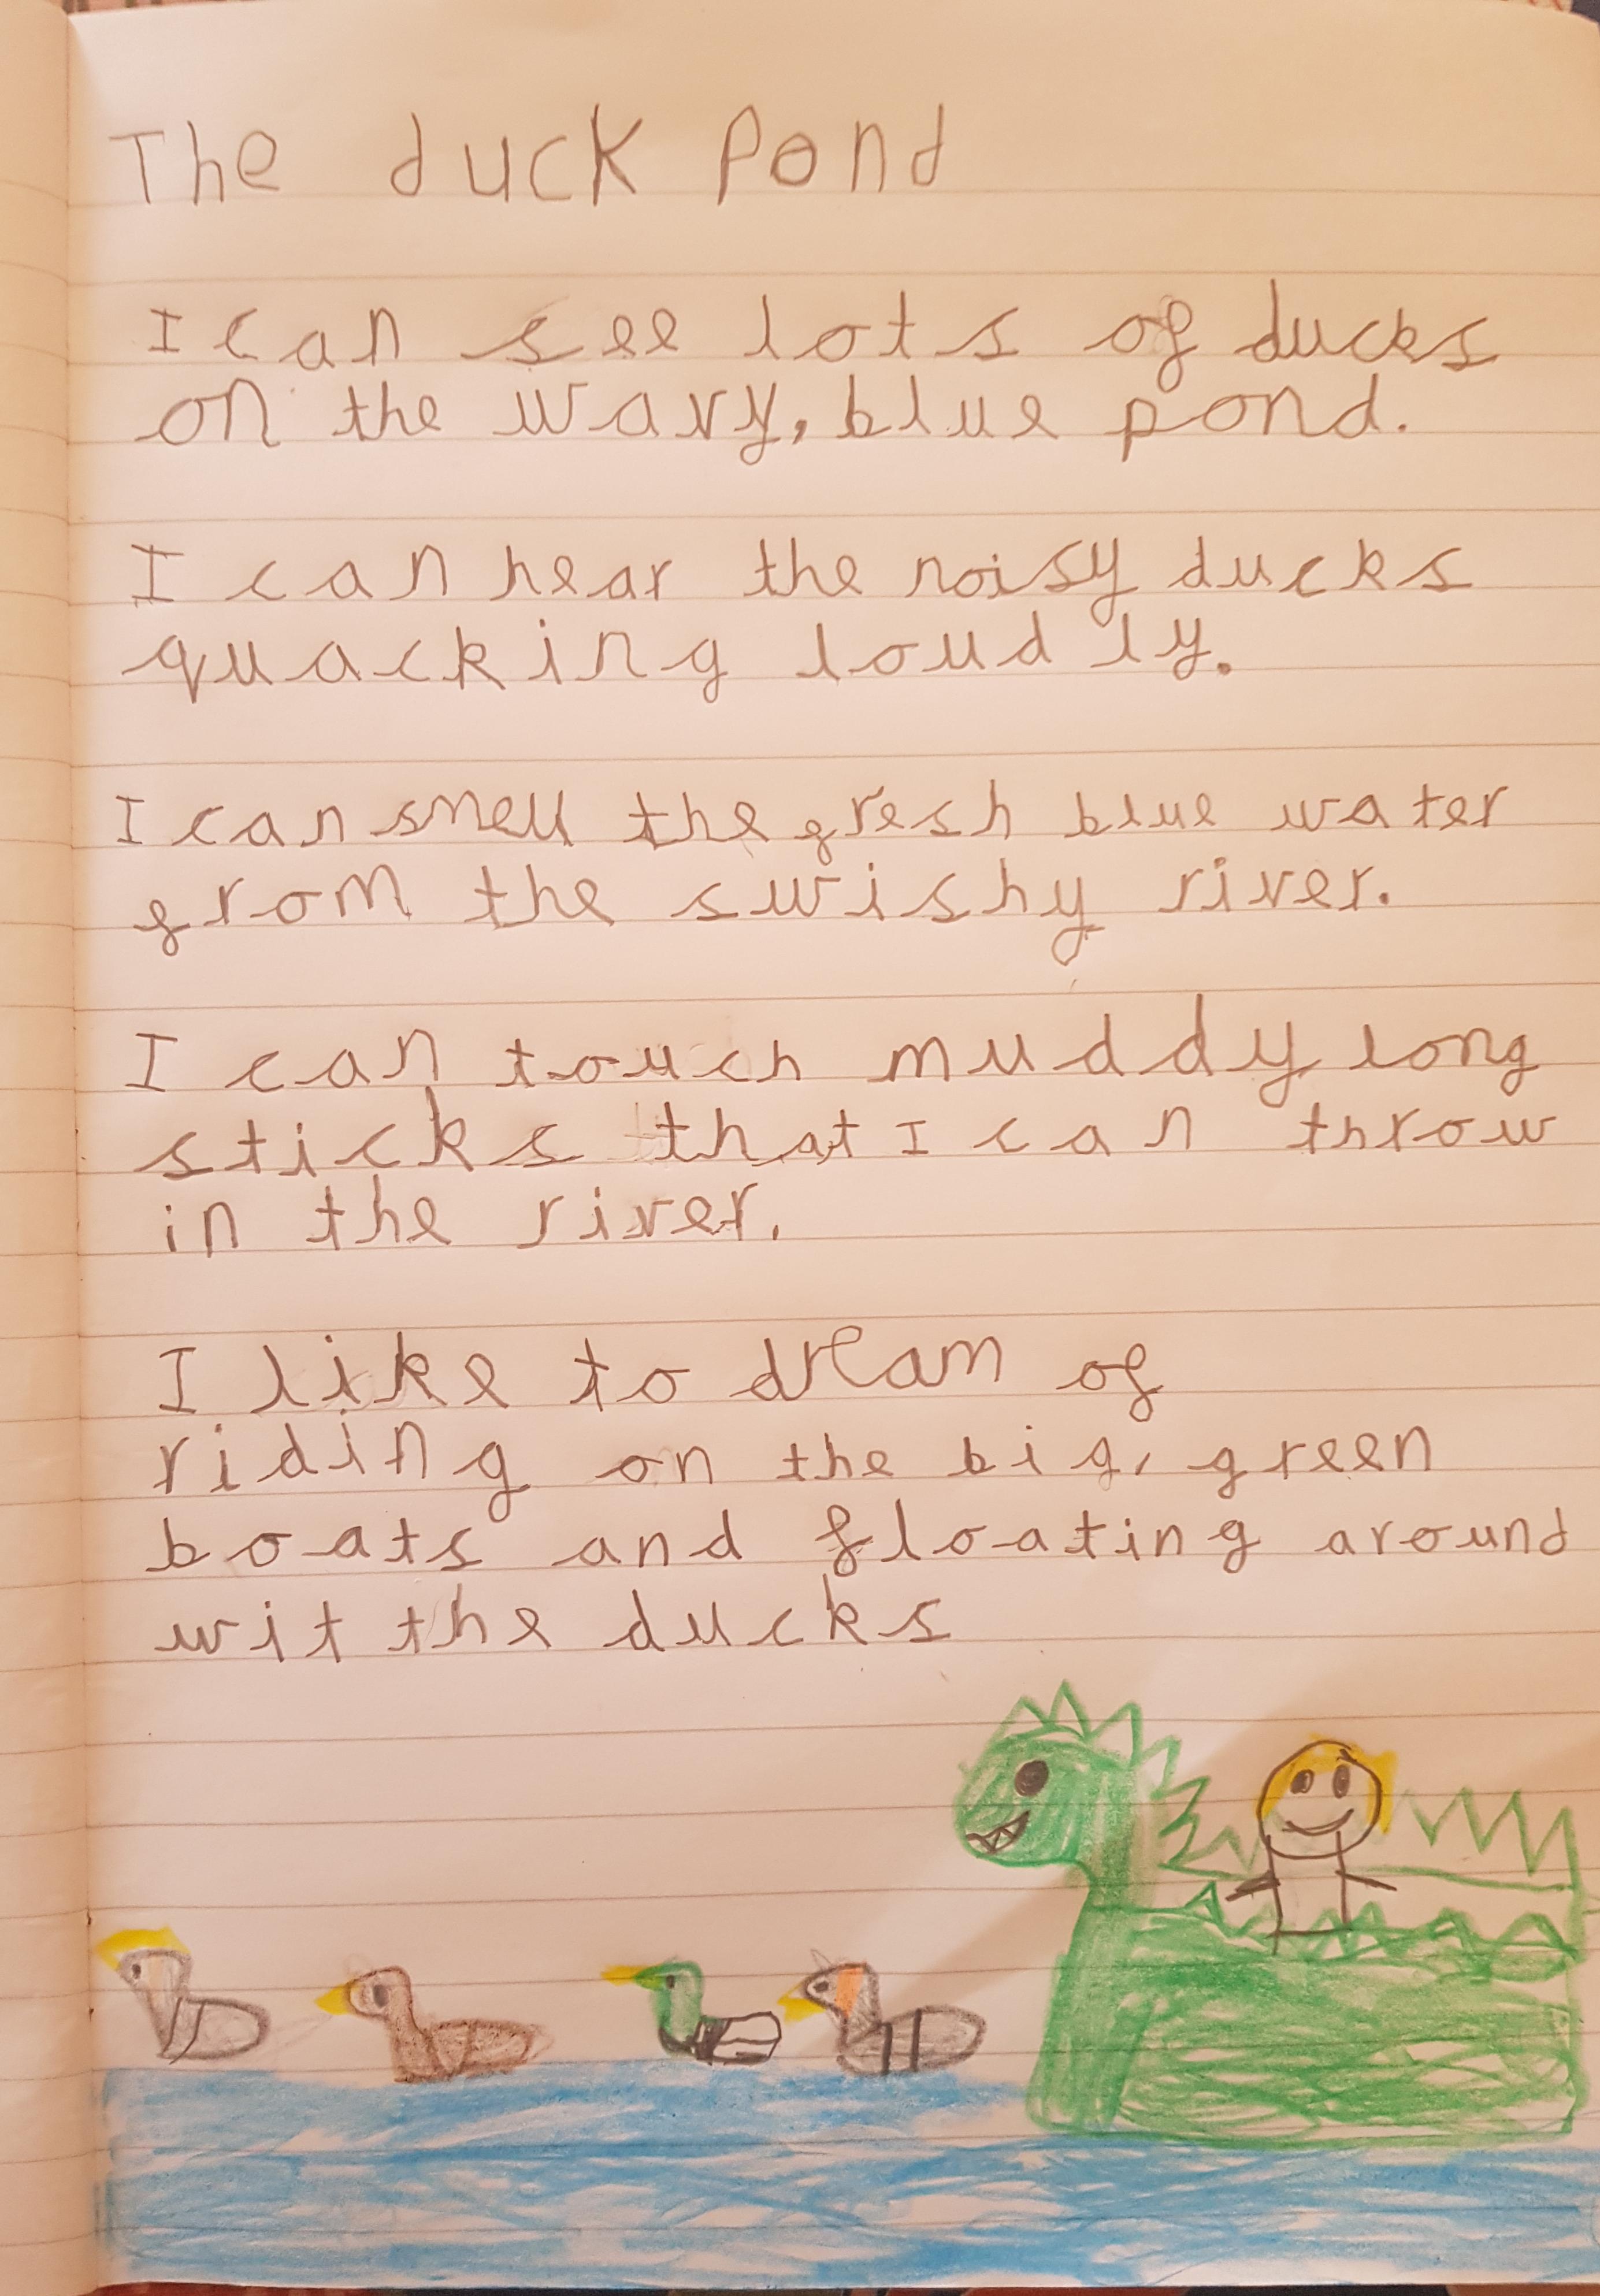 The duck Pond
I can see lots of ducks
on the wavy, blue pond.
I can hear the noisy ducks
quacking loudly.
I can smell the fresh blue water
from the swishy river.
I can touch muddy long
sticks that I can throw
in the river.
I like to dream of
riding on the big, green
boats and floating around
wit the ducks